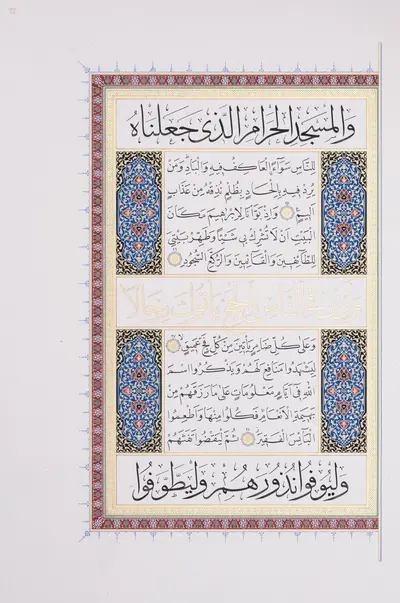 وَالْمَسْجِدِ الْحَرَامِ الَّذِى جَعَلْنَاهُ
لِلنَّاسِ سَوَاءً الْعَاكِفُ فِيهِ وَالْبَادِ وَمَنْ
يُرِدْ فِيهِ بِإِلْحَادٍ بِظُلْمٍ نُذِقْهُ مِنْ عَذَابٍ
أَلِيمٍ وَإِذْ بَوَّأْنَا لِإِبْرَاهِيمَ مَكَانَ
الْبَيْتِ أَنْ لَا تُشْرِكْ بِى شَيْئًا وَطَهِّرْ بَيْتِىَ
لِلطَّائِفِينَ وَالْقَائِمِينَ وَالرُّكَّعِ السُّجُودِ
وَأَذِّنْ فِى النَّاسِ بِالْحَجِّ يَأْتُوكَ رِجَالًا
وَعَلَى كُلِّ ضَامِرٍ يَأْتِينَ مِنْ كُلِّ فَجٍّ عَمِيقٍ
لِيَشْهَدُوا مَنَافِعَ لَهُمْ وَيَذْكُرُوا اسْمَ
اللهِ فِى أَيَّامٍ مَعْلُومَاتٍ عَلَى مَا رَزَقَهُمْ مِنْ
بَهِيمَةِ الْأَنْعَامِ فَكُلُوا مِنْهَا وَأَطْعِمُوا
الْبَائِسَ الْفَقِيرَ ثُمَّ لْيَقْضُوا تَفَثَهُمْ
وَلْيُوفُوا نُذُورَهُمْ وَلْيَطَّوَّفُوا